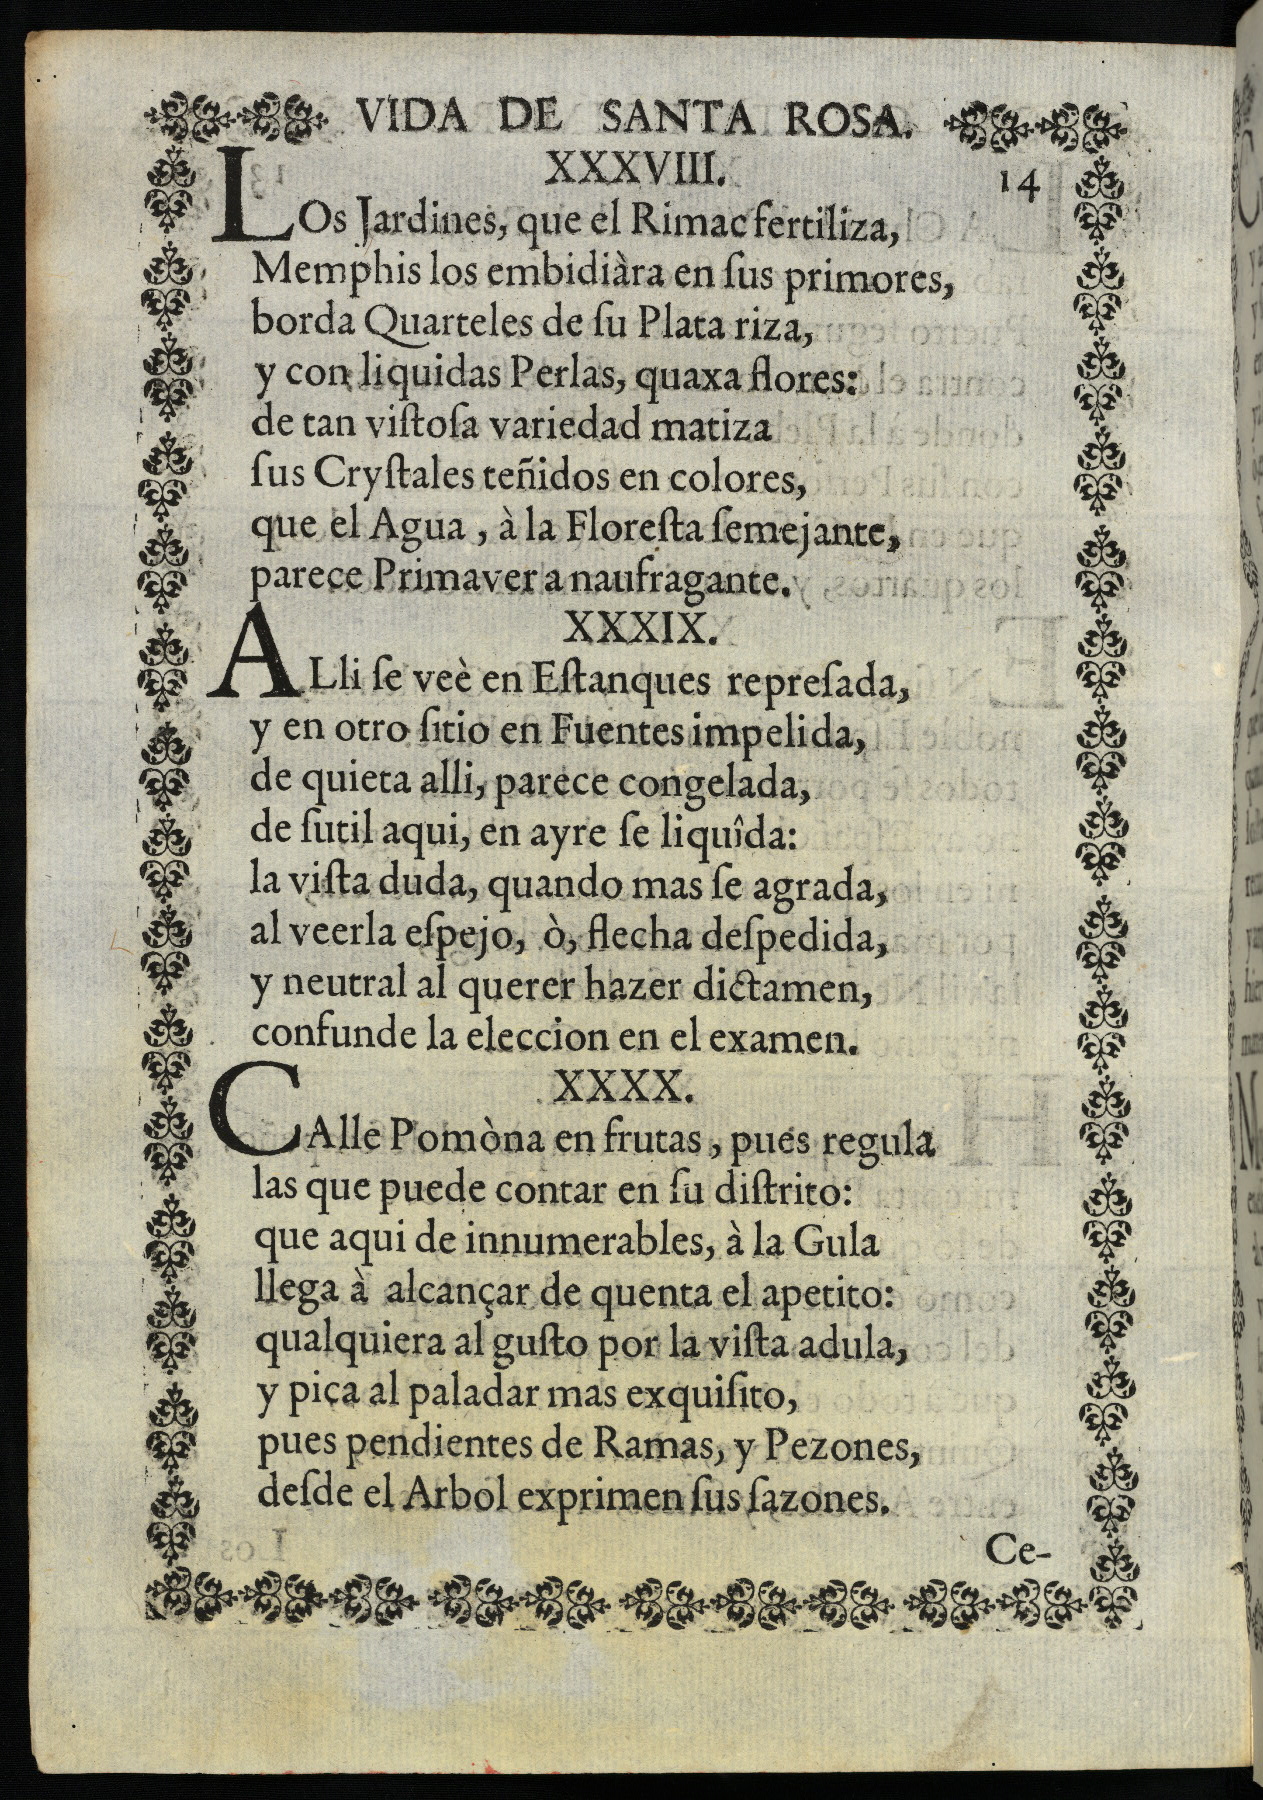 VIDA DE SANTA ROSA.
XXXVIII.
14
LOs Jardines, que el Rimac fertiliza,
Memphis los embidiàra en ſus primores,
borda Quarteles de ſu Plata riza,
y con liquidas Perlas, quaxa flores:
de tan viſtoſa variedad matiza
ſus Cryſtales teñidos en colores,
que el Agua , à la Floreſta ſemejante,
parece Primavera naufragante.
XXXIX.
ALli ſe veè en Eſtanques repreſada,
y en otro ſitio en Fuentes impelida,
de quieta alli, parece congelada,
de ſutil aqui, en ayre ſe liquîda:
la viſta duda, quando mas ſe agrada,
al veerla eſpejo, ò, flecha deſpedida,
y neutral al querer hazer dictamen,
confunde la eleccion en el examen.
XXXX.
CAlle Pomòna en frutas , pues regula
las que puede contar en ſu diſtrito:
que aqui de innumerables, à la Gula
llega à alcançar de quenta el apetito:
qualquiera al guſto por la viſta adula,
y pica al paladar mas exquiſito,
pues pendientes de Ramas, y Pezones,
deſde el Arbol exprimen ſus ſazones.
Ce-